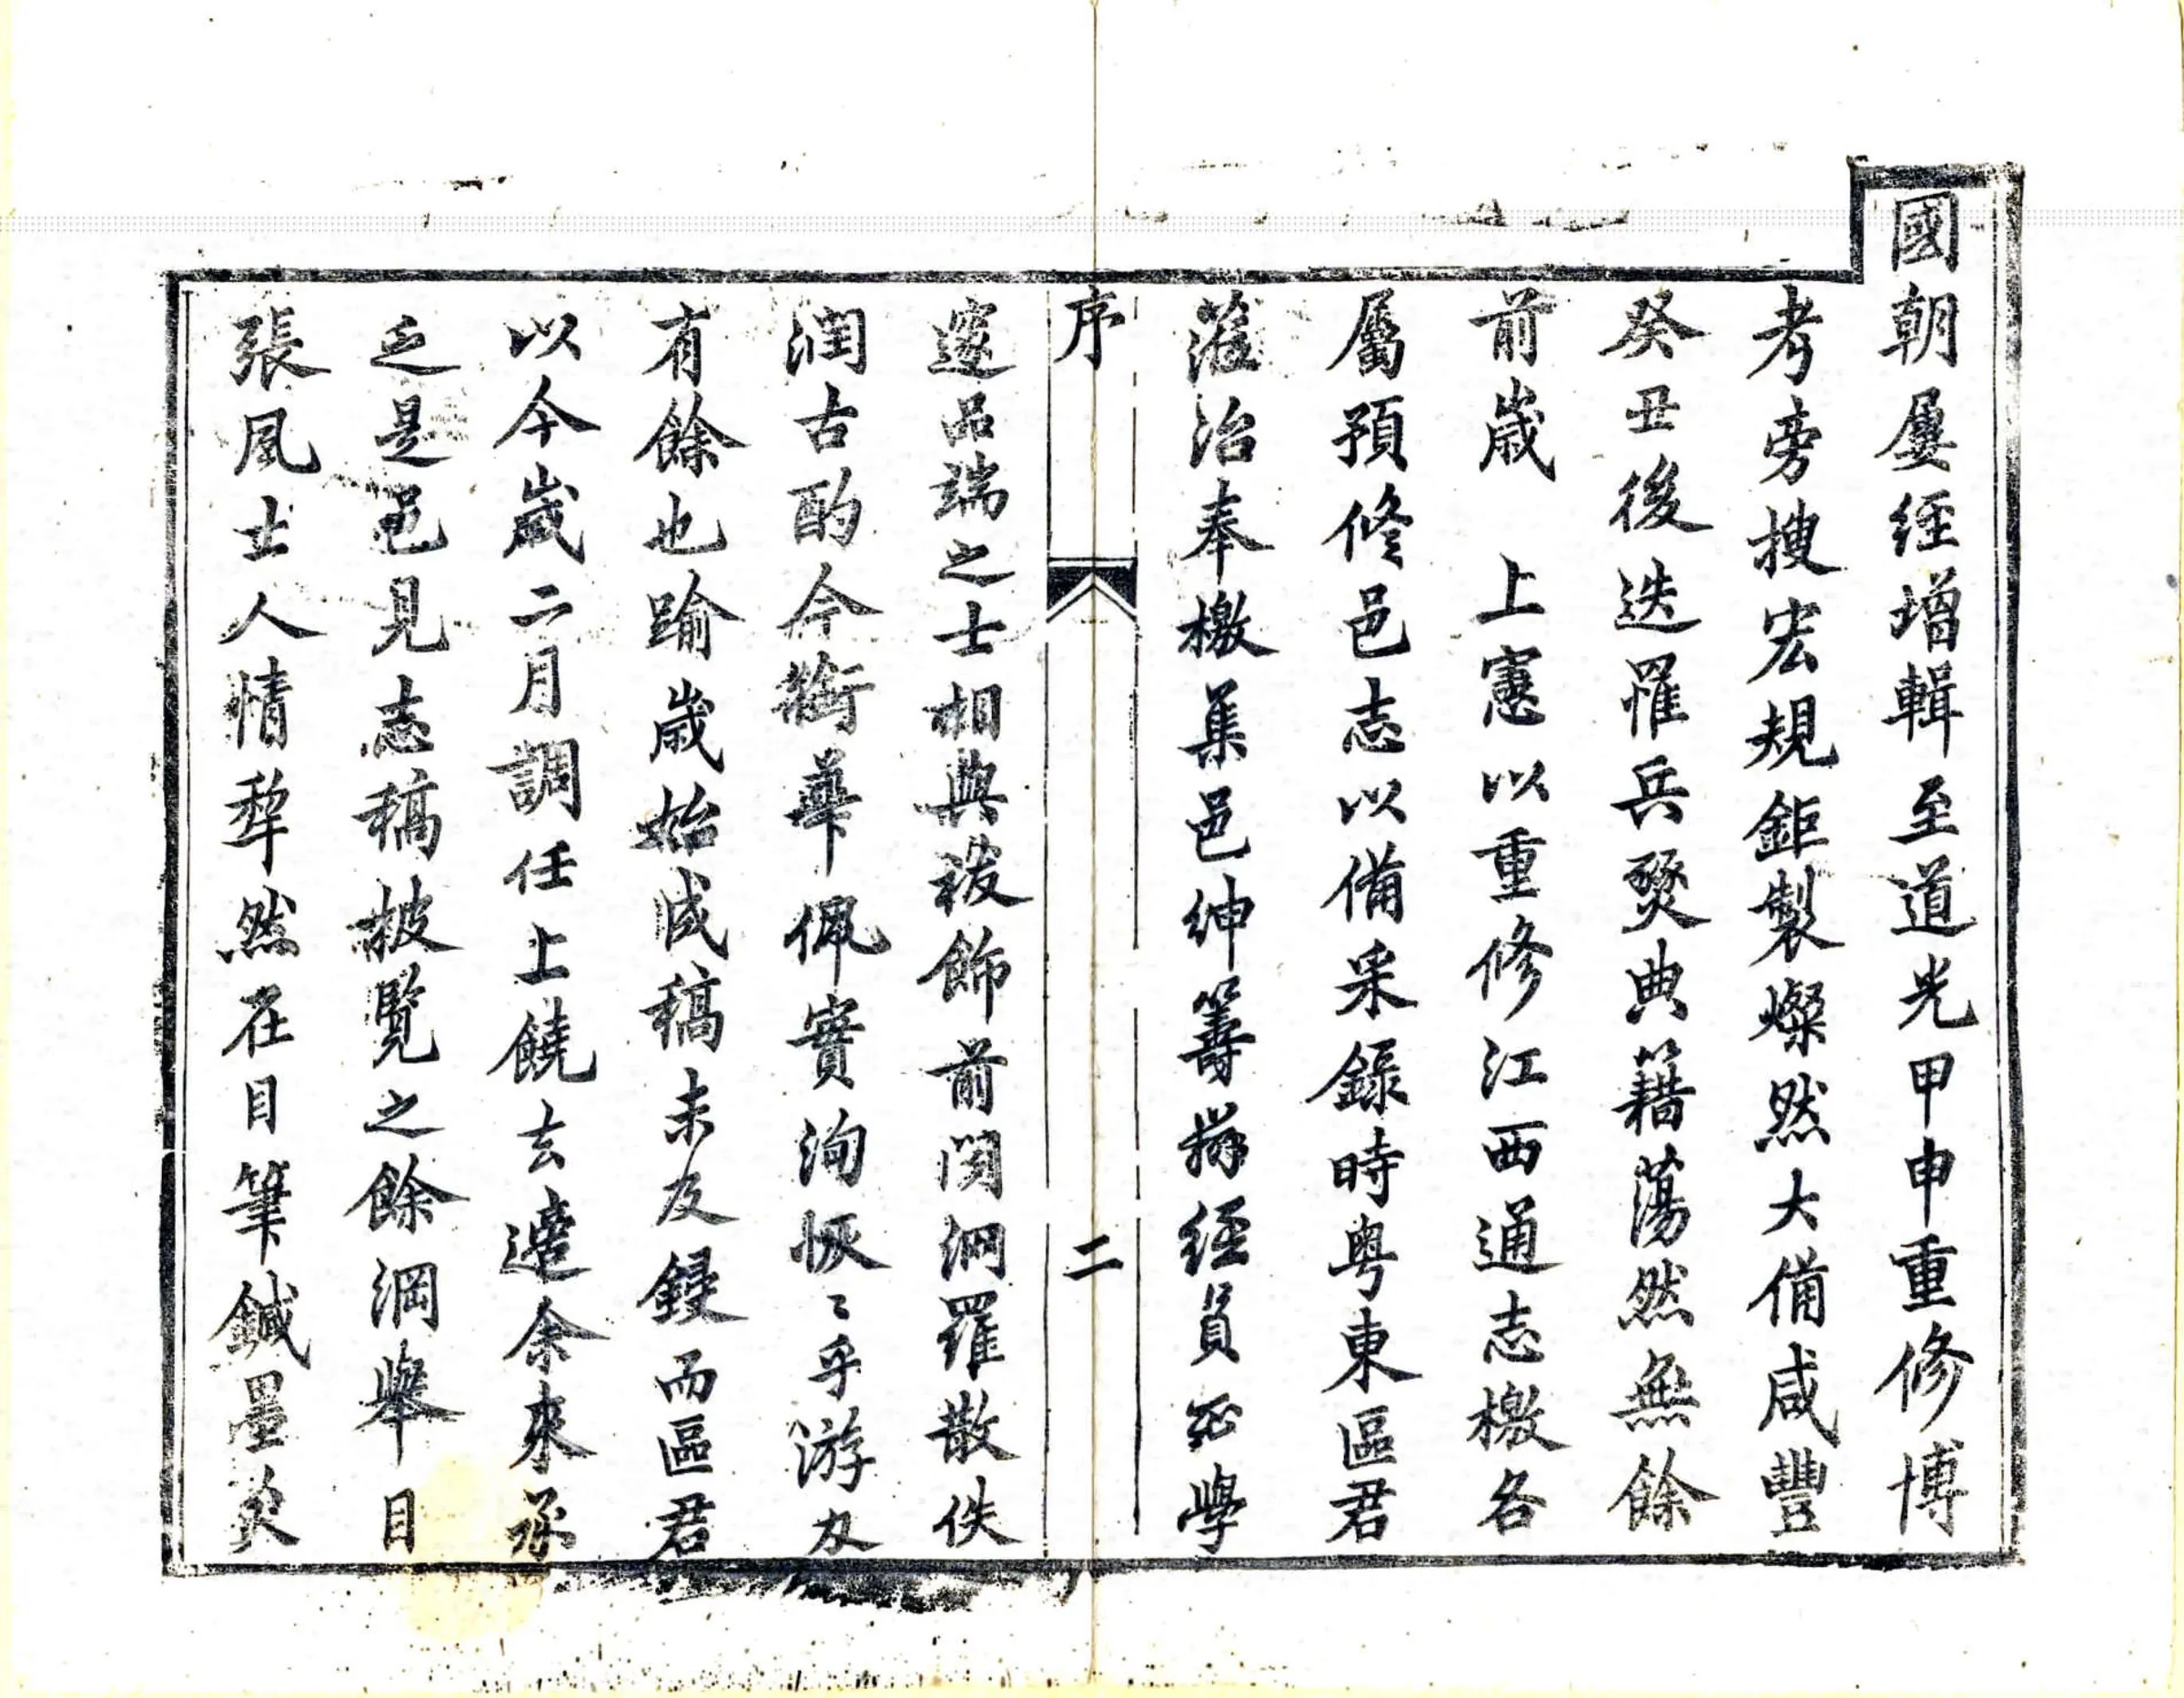 國朝屢經增輯至道光甲申重修博
考旁搜宏規鉅製燦然大備咸豐
癸丑後迭罹兵燹典籍蕩然無餘
前歲 上憲以重修江西通志檄各
屬預修邑志以備采錄時粤東區君
蒞治奉檄集邑紳籌辦經員延學
邃品端之士相與祓飾前聞網羅散佚
潤古酌今銜華佩實洵恢〻乎游刃
有餘也踰歲始成稿未及鋟而區君
以今歲二月調任上饒去邊余來承
乏是邑見志稿披覽之餘綱舉目
張風土人情犂然在目筆鍼墨灸
序
二